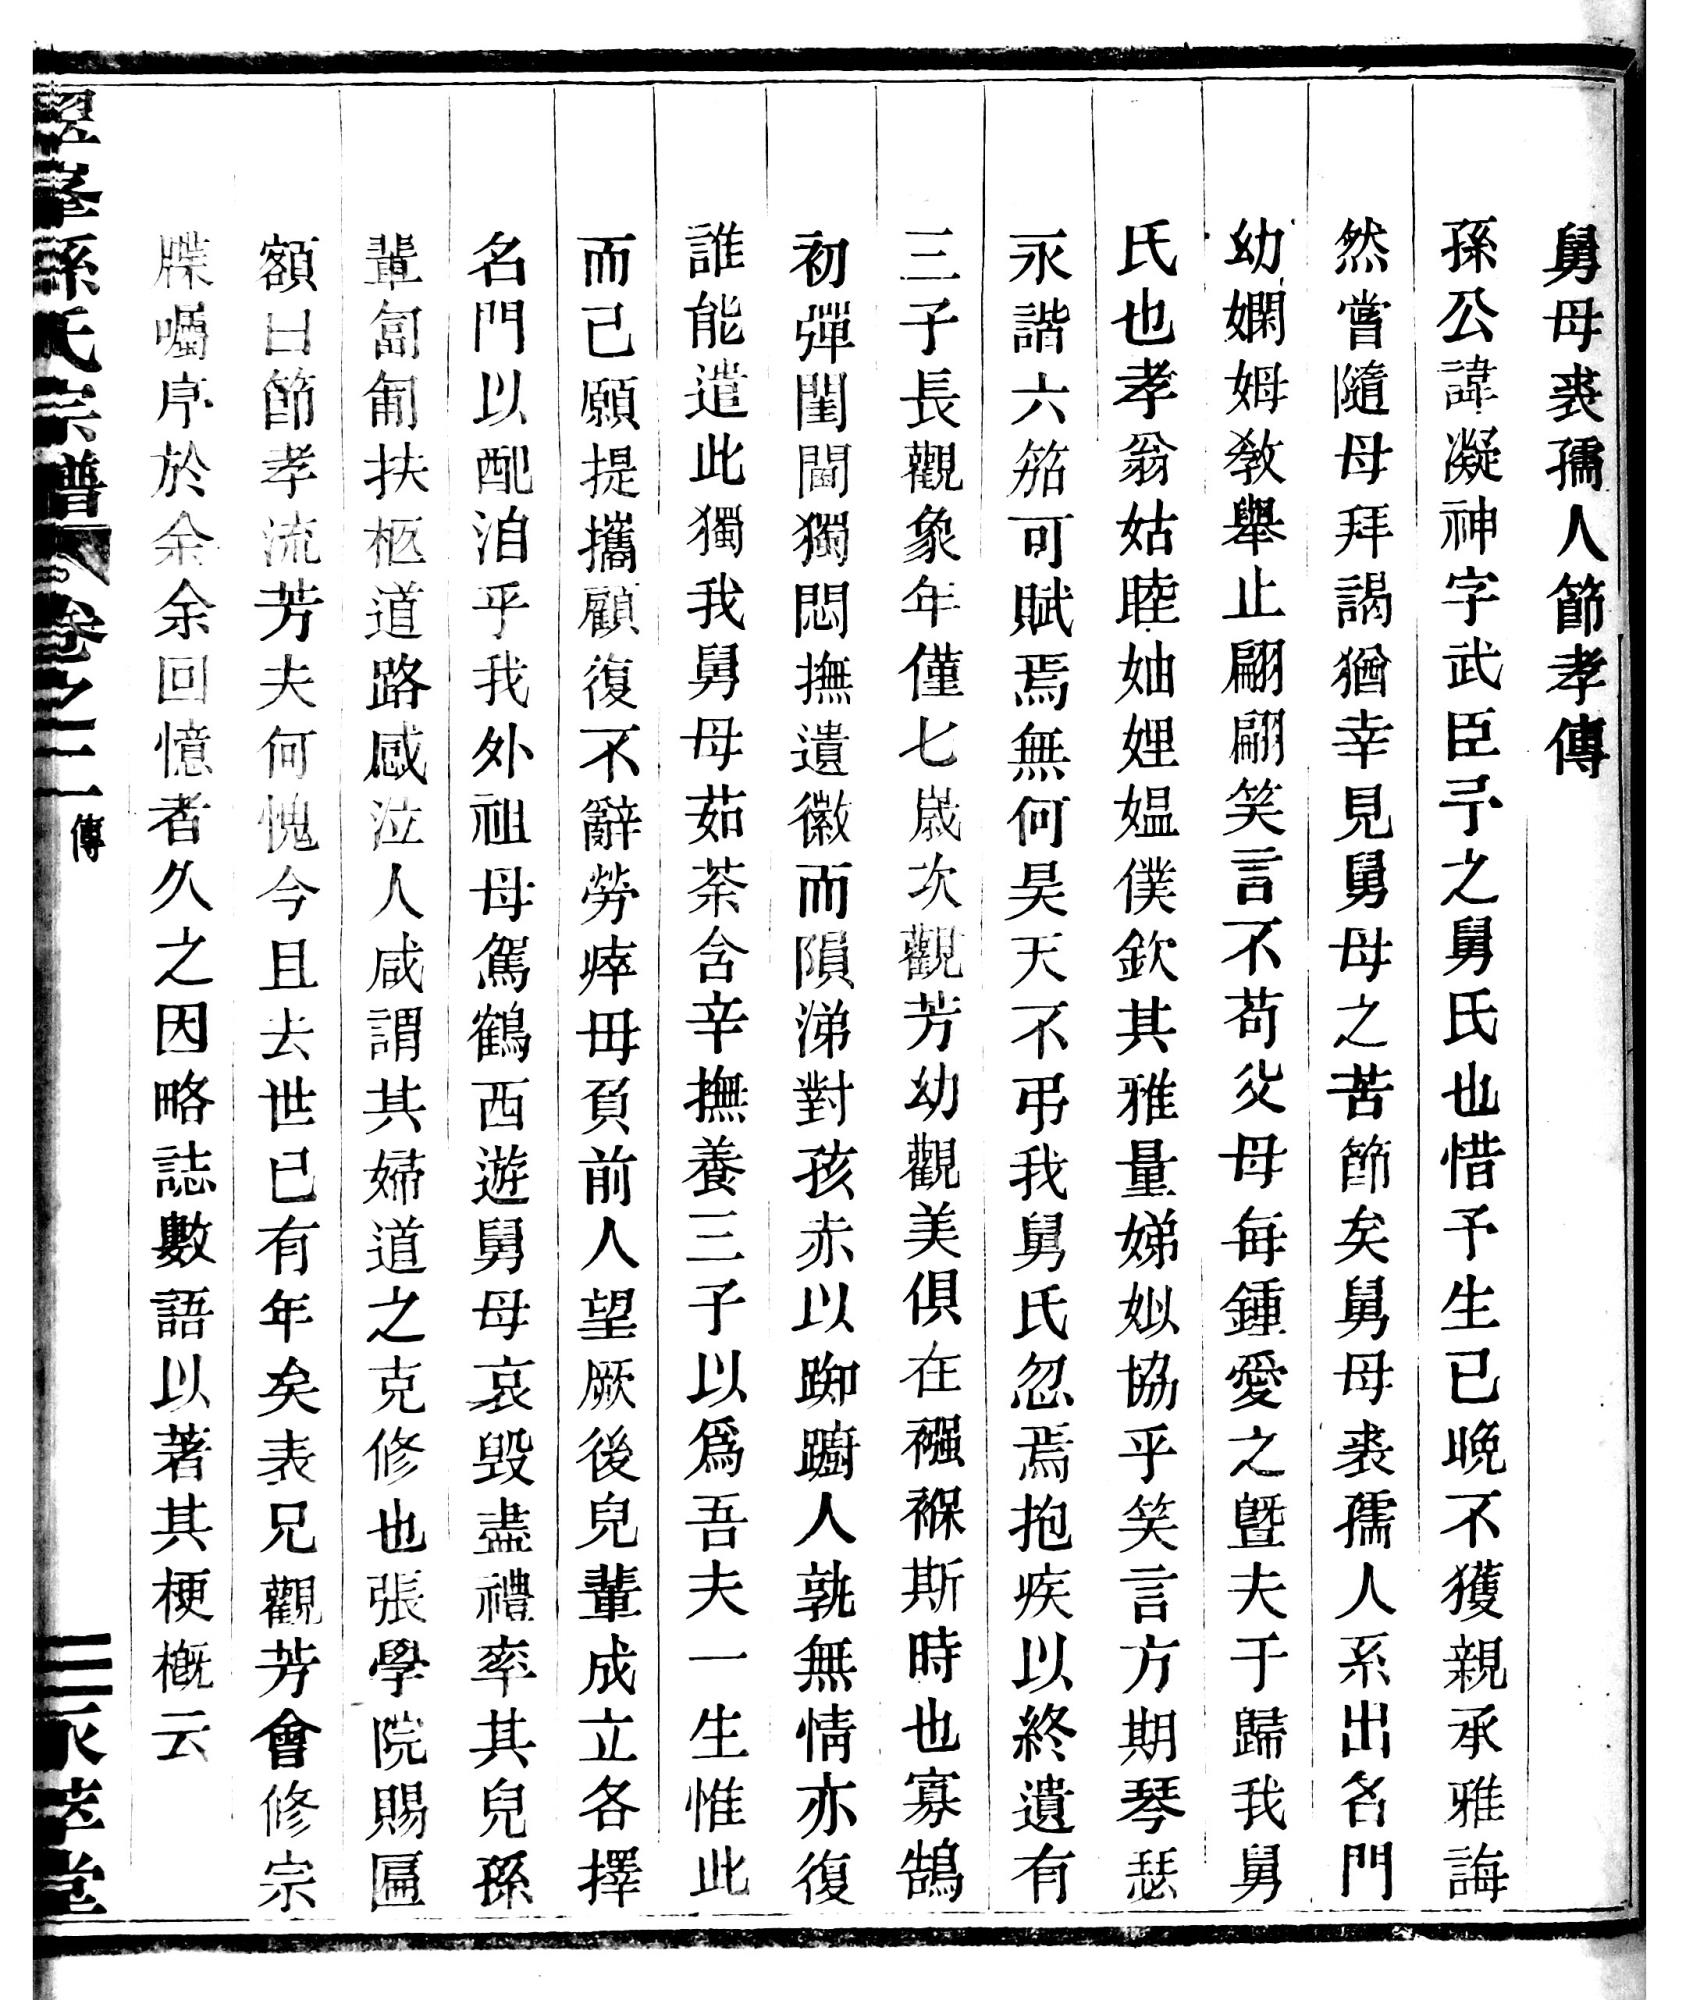 舅母裘孺人節孝傳
孫公諱凝神字武臣予之舅氏也惜予生已晚不獲親承雅誨
然嘗隨母拜謁猶幸見舅母之苦節矣舅母裘孺人系出名門
幼嫻姆教舉止翩翩笑言不苟父母每鍾愛之曁夫于歸我舅
氏也孝翁姑睦妯娌媪僕欽其雅量娣姒協乎笑言方期琴瑟
永諧六笳可賦焉無何昊天不弔我舅氏忽焉抱疾以終遺有
三子長觀象年僅七歲次觀芳幼觀美俱在襁褓斯時也寡鵠
初彈閨閫獨悶撫遺徽而隕涕對孩赤以踟躕人孰無情亦復
誰能遣此獨我舅母茹荼含辛撫養三子以爲吾夫一生惟此
而已願提攜顧復不辭勞瘁毋負前人望厥後兒輩成立各擇
名門以配洎乎我外祖母駕鶴西遊舅母哀毀盡禮率其兒孫
輩匍匐扶柩道路感泣人咸謂其婦道之克修也張學院賜匾
額曰節孝流芳夫何愧今且去世已有年矣表兄觀芳會修宗
牒囑序於余余回憶者久之因略誌數語以著其梗槪云
孫氏宗譜 卷之二 傳 三 承萃堂